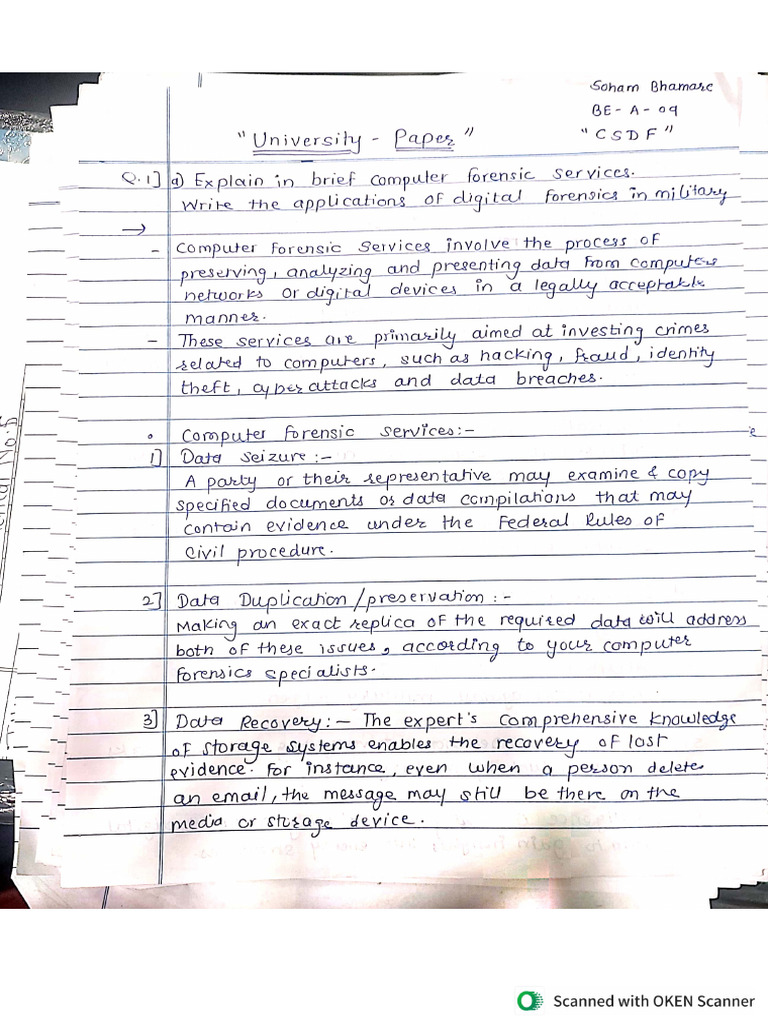 Soham Bhamare
BE-A-09
"University - Paper" "CSDF"
Q.1] a) Explain in brief computer forensic services.
Write the applications of digital forensics in military
→
- Computer Forensic Services involve the process of
preserving, analyzing and presenting data from computers
networks or digital devices in a legally acceptable
manner.
- These services are primarily aimed at investing crimes
related to computers, such as hacking, fraud, identity
theft, cyber attacks and data breaches.
• Computer forensic services:-
1] Data seizure:-
A party or their representative may examine & copy
specified documents or data compilations that may
contain evidence under the Federal Rules of
Civil procedure.
2] Data Duplication/preservation:-
Making an exact replica of the required data will address
both of these issues, according to your computer
forensics specialists.
3] Data Recovery:- The expert's comprehensive knowledge
of storage systems enables the recovery of lost
evidence. For instance, even when a person delete
an email, the message may still be there on the
media or storage device.
Scanned with OKEN Scanner